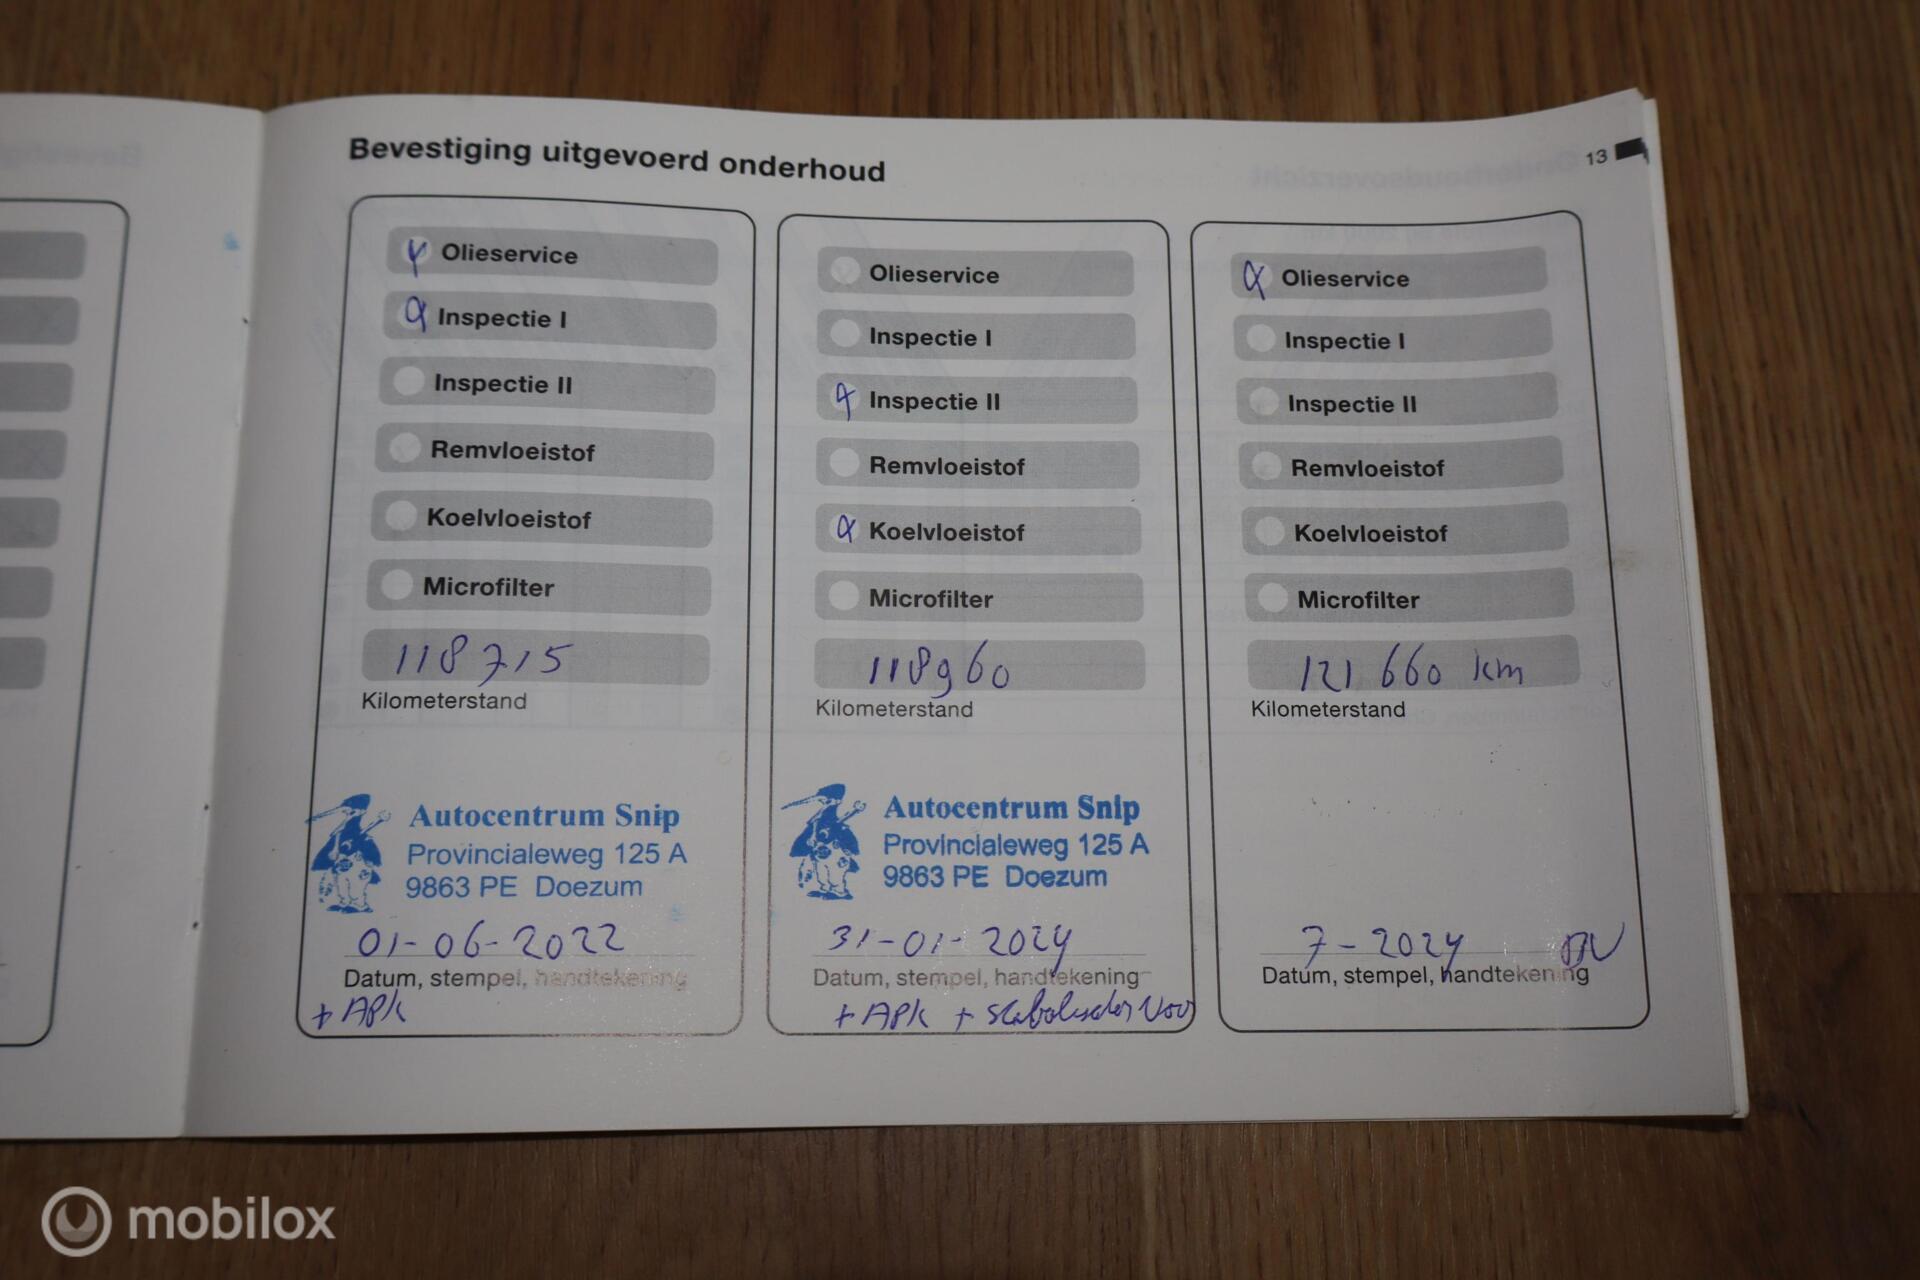 Bevestiging uitgevoerd onderhoud
13
Olieservice
Inspectie I
Inspectie II
Remvloeistof
Koelvloeistof
Microfilter
118715
Kilometerstand
Autocentrum Snip
Provincialeweg 125 A
9863 PE Doezum
01-06-2022
Datum, stempel, handtekening
+ APK
Olieservice
Inspectie I
Inspectie II
Remvloeistof
Koelvloeistof
Microfilter
118960
Kilometerstand
Autocentrum Snip
Provincialeweg 125 A
9863 PE Doezum
31-01-2024
Datum, stempel, handtekening
+ APK +
Olieservice
Inspectie I
Inspectie II
Remvloeistof
Koelvloeistof
Microfilter
121 660 km
Kilometerstand
7-2024
Datum, stempel, handtekening
mobilox